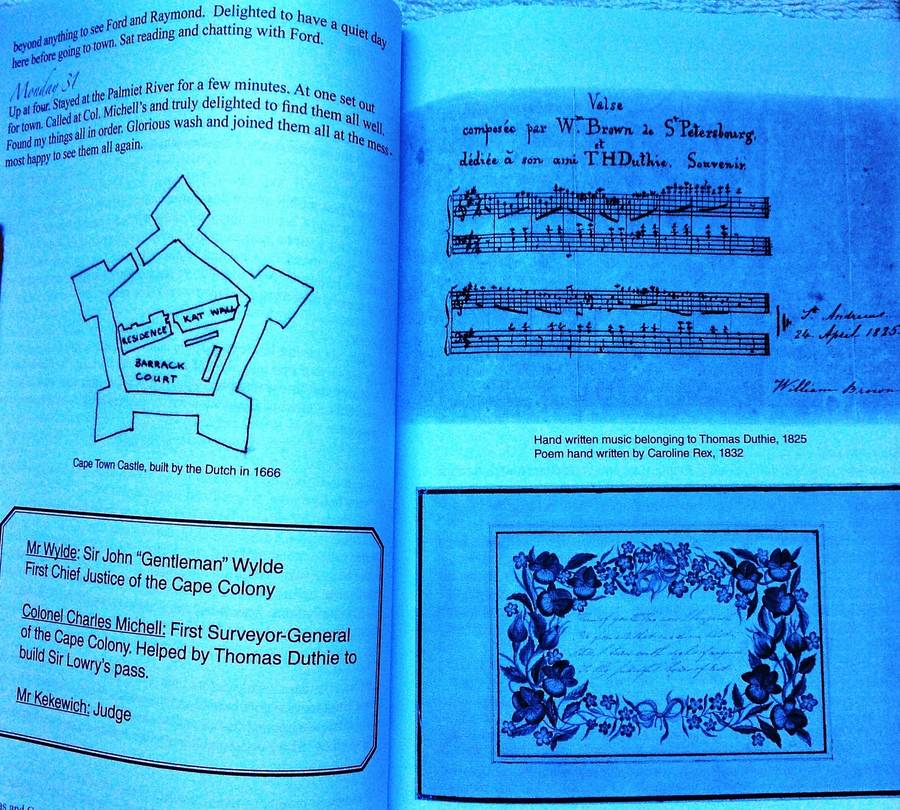 beyond anything to see Ford and Raymond. Delighted to have a quiet day
here before going to town. Sat reading and chatting with Ford.
Monday 31
Up at four. Stayed at the Palmiet River for a few minutes. At one set out
for town. Called at Col. Michell's and truly delighted to find them all well.
Found my things all in order. Glorious wash and joined them all at the mess,
most happy to see them all again.
RESIDENCE
KAT WALL
BARRACK
COURT
Cape Town Castle, built by the Dutch in 1666
Mr Wylde: Sir John “Gentleman” Wylde
First Chief Justice of the Cape Colony
Colonel Charles Michell: First Surveyor-General
of the Cape Colony. Helped by Thomas Duthie to
build Sir Lowry's pass.
Mr Kekewich: Judge
Valse
composée par Wm. Brown de St Petersbourg,
et
dédiée à son ami THDuthie. Souvenir.
St. Andrews.
24. April 1825
William Brown
Hand written music belonging to Thomas Duthie, 1825
Poem hand written by Caroline Rex, 1832